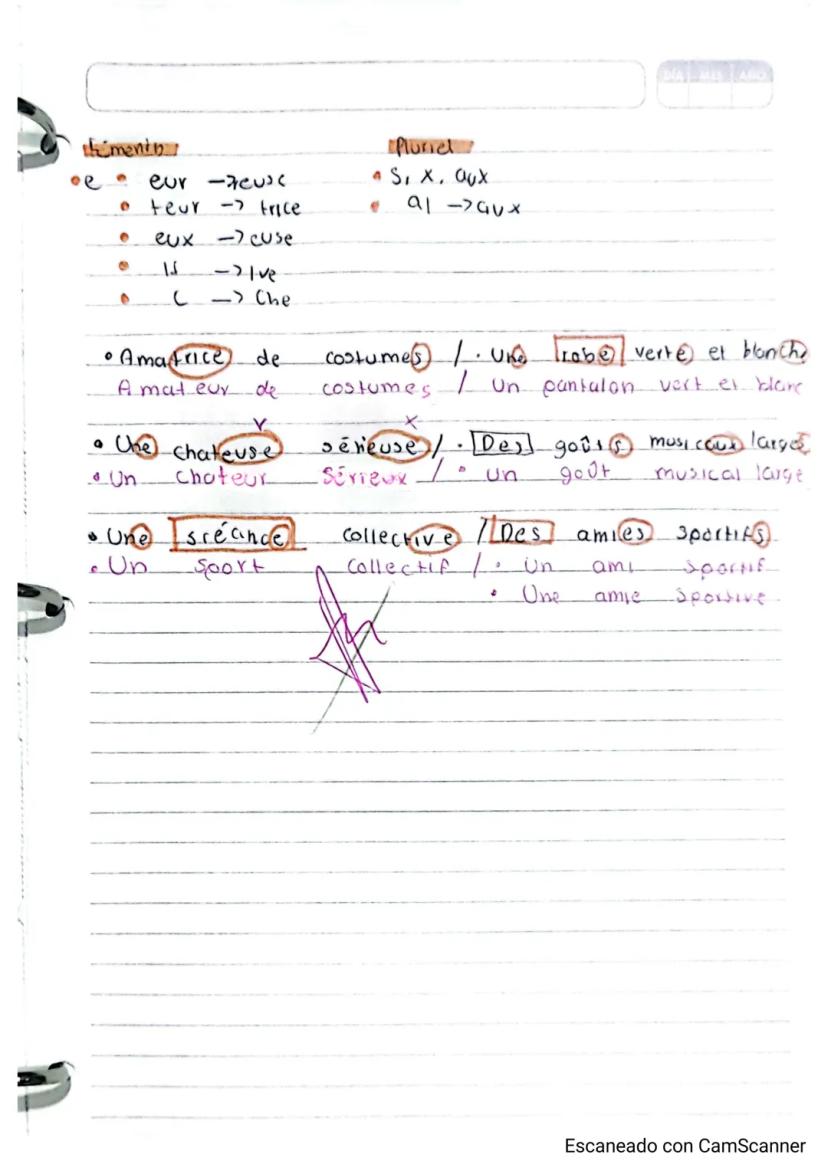 DÍA MES AÑO
Féminin Pluriel
• e • eur → euse • S, x, aux
• teur → trice • al → aux
• eux → euse
• if → Ive
• C → Che
• Amatrice de costumes / • Une robe verte et blanche
Amateur de costumes / Un pantalon vert et blanc
v x
• Une chateuse sérieuse / • Des goûts musicaux larges
• Un chateur Sérieux / • un goût musical large
• Une scéance collective / Des amies sportifs
• Un Sport collectif / • Un ami Sportif
• Une amie Sportive
Escaneado con CamScanner